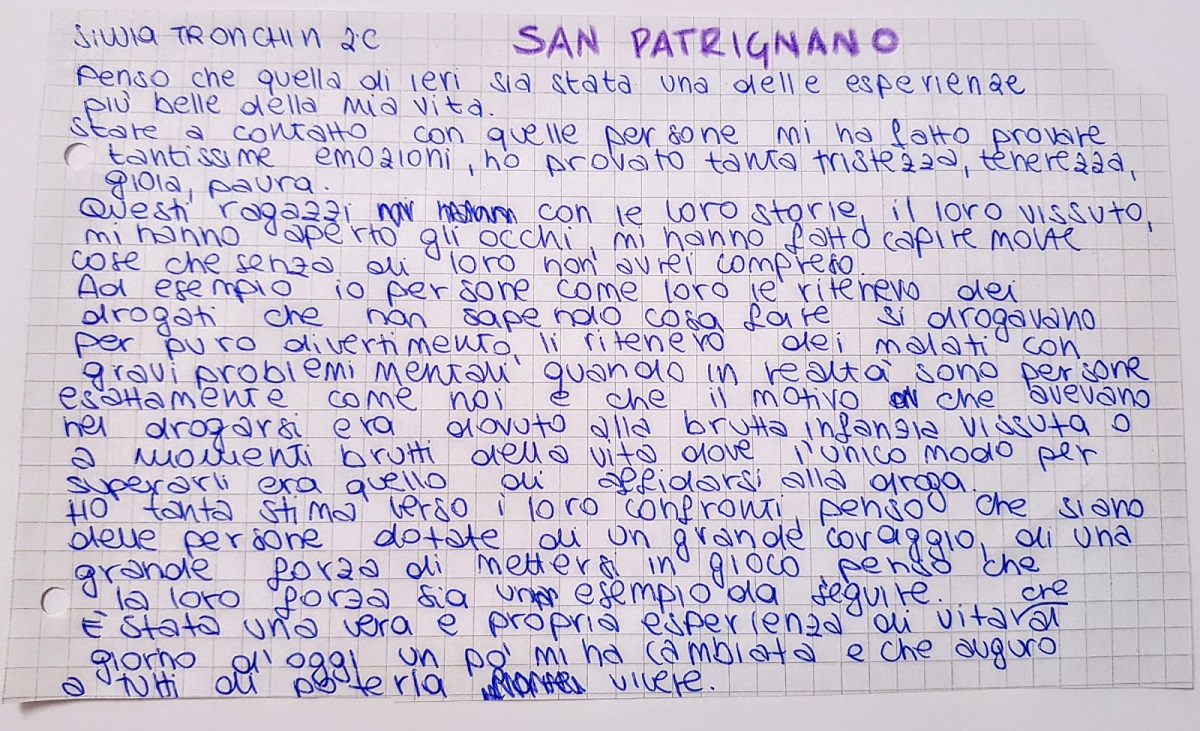 SILVIA TRONCHIN 2^C SAN PATRIGNANO
Penso che quella di ieri sia stata una delle esperienze
più belle della mia vita.
Stare a contatto con quelle persone mi ha fatto provare
tantissime emozioni, ho provato tanta tristezza, tenerezza,
gioia, paura.
Questi ragazzi con le loro storie, il loro vissuto,
mi hanno aperto gli occhi, mi hanno fatto capire molte
cose che senza di loro non avrei compreso.
Ad esempio io persone come loro le ritenevo dei
drogati che non sapendo cosa fare si drogavano
per puro divertimento, li ritenevo dei malati con
gravi problemi mentali quando in realtà sono persone
esattamente come noi e che il motivo che avevano
nel drogarsi era dovuto alla brutta infanzia vissuta o
a momenti brutti della vita dove l'unico modo per
superarli era quello di affidarsi alla droga.
Ho tanta stima verso i loro confronti, penso che siano
delle persone dotate di un grande coraggio, di una
grande forza di mettersi in gioco penso che
la loro forza sia un esempio da seguire. cre
È stata una vera e propria esperienza di vita al
giorno d'oggi un po' mi ha cambiata e che auguro
a tutti di poterla vivere.